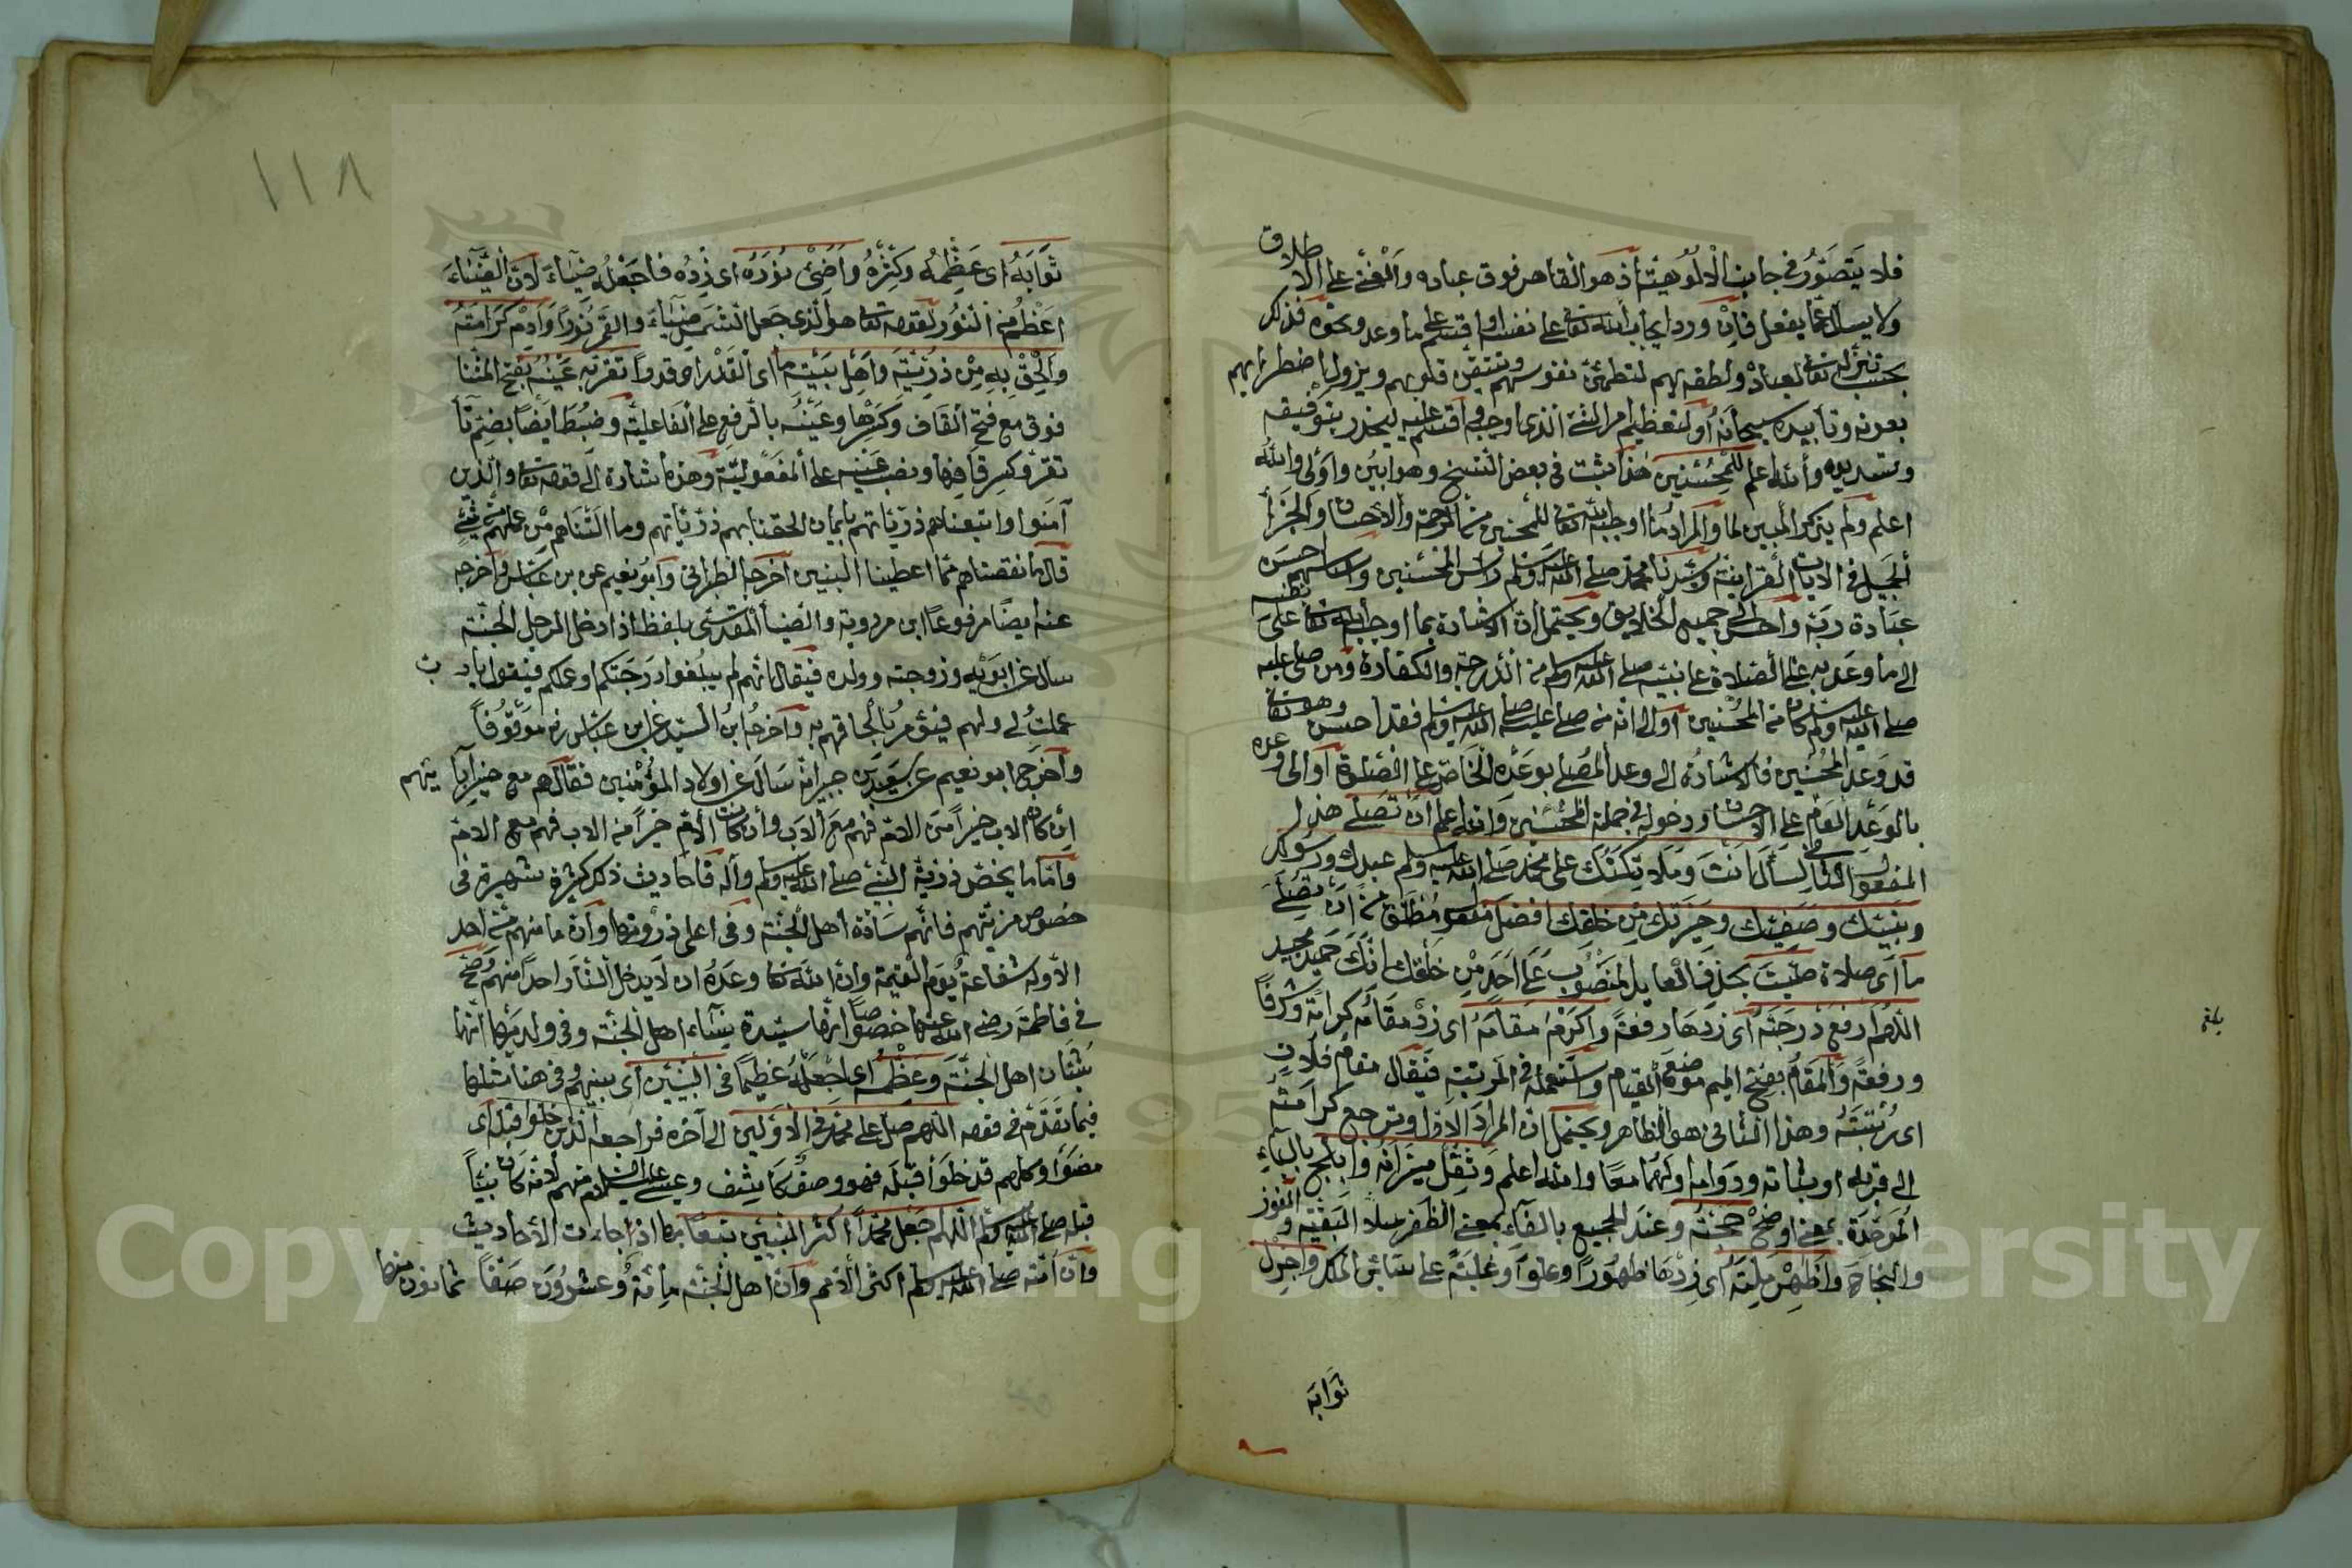 فلا يتصور في جانب الالوهية اذ هو القاهر فوق عباده والغني على الاطلاق
ولا يسال عما يفعل فان ورد ايجاب الله تعالى على نفسه او اقسم على ما وعد ونحوه فذلك
بحسب تنزله تعالى لعباده ولطفه بهم لتطمئن نفوسهم وتتيقن قلوبهم ويزول اضطرابهم
بعونه وتأييده سبحانه او لتعظيم امر الشيء الذي اوجبه او اقسم عليه ليحذر بتوفيقه
وتسديده والله اعلم للمحسنين هذا ثبت في بعض النسخ وهو ابين واولى والله
اعلم ولم يذكر المبين لما والمراد ما اوجبه الله تعالى للمحسنين من الرحمة والاحسان والجزاء
الجميل في الايات القرآنية وسيدنا محمد صلى الله عليه وسلم راس المحسنين واساسهم احسن
عبادة ربه واحسن الى جميع الخلايق ويحتمل ان الاشارة بما اوجب الله تعالى على نفسه
الى ما وعد به على الصلاة على نبيه صلى الله عليه وسلم من الدرجة والكفارة ومن صلى عليه
صلى الله عليه وسلم كان من المحسنين او الى انه من صلى عليه صلى الله عليه وسلم فقد احسن وهو تعالى
قد وعد المحسنين فالاشارة الى وعد المصلي بوعده الخاص على الصلوة او الى وعده
بالوعد العام على الاحسان ودخوله في جملة المحسنين والله اعلم ان تصلي هذا
المفعول الثاني لسأل انت وملائكتك على محمد صلى الله عليه وسلم عبدك ورسولك
ونبيك وصفيك وخيرتك من خلقك افضل مفعول مطلق من ان تصلي
ما اي صلاة صليت بحذف العايد المنصوب على احد من خلقك انك حميد مجيد
اللهم ارفع درجته اي زدها رفعة واكرم مقامه اي زد مقامه كرامة وشرفا
ورفعة والمقام بفتح الميم موضع القيام واستعمله في المرتبة فيقال مقام فلان
اي رتبته وهذا الثاني هو الظاهر ويحتمل ان المراد الاول وترجع كرامته
الى قربه او ثباته ودوامه ولهما معا والله اعلم وثقل ميزانه وابلج بالباء
الموحدة بمعنى اوضح حجته وعند الجميع بالفاء بمعنى الظفر بنيل البغية والفوز
والنجاح واظهر ملته اي زدها ظهورا وعلوا وغلبة على سائر الملل واجزل
ثوابه
بلغ
١١٨
ثوابه اي عظمه وكثره واضئ نوره اي زده فاجعله ضياء لان الضياء
اعظم من النور لقوله تعالى هو الذي جعل الشمس ضياء والقمر نورا وادم كرامته
والحق به من ذريته واهل بيته ما اي القدر او قدرا تقر به عينه بفتح المثناة
فوق مع فتح القاف وكسرها وعينه بالرفع على الفاعلية وضبط ايضا بضم تا
تقر وكسر قافها ونصب عينيه على المفعولية وهذه اشارة الى قوله تعالى والذين
آمنوا واتبعناهم ذرياتهم بايمان الحقنا بهم ذرياتهم وما التناهم من عملهم من شيء
قال ما نقصناهم مما اعطينا البنين اخرجه الطبراني وابو نعيم عن بن عباس واخرجه
عنه ايضا مرفوعا ابن مردويه والضياء المقدسي بلفظ اذا دخل الرجل الجنة
سال عن ابويه وزوجته وولده فيقال انهم لم يبلغوا درجتك او عملك فيقول يا رب
عملت لي ولهم فيؤمر بالحاقهم به واخرج ابن السيد عن ابن عباس نه موقوفا
واخرج ابو نعيم عن سعيد بن جبير انه سال عن اولاد المؤمنين فقال هم مع خير آبائهم
ان كان الاب خيرا من الام فهم مع الاب وان كانت الام خيرا من الاب فهم مع الام
واما ما يخص ذرية النبي صلى الله عليه وسلم وآله فاحاديث ذلك كثيرة شهيرة في
خصوص مزيتهم فانهم سادة اهل الجنة وفي اعلى ذروتها وان ما منهم من احد
الا وله شفاعة يوم القيمة وان الله تعالى وعده ان لا يدخل النار احدا منهم وصح
في فاطمة رضي الله عنها خصوصا انها سيدة نساء اهل الجنة وفي ولديها انهما سيدا
شبان اهل الجنة وعظمه اي اجعله عظيما في النبيين اي بينهم وفي هنا مثلها
فيما تقدم في قوله اللهم صل على محمد في الاولين الى آخره فراجعه الذين خلوا قبله اي
مضوا وكلهم قد خلوا قبله فهو وصف كاشف وعيسى عليه السلام منهم لانه كان نبيا
قبله صلى الله عليه وسلم اللهم اجعل محمدا اكثر النبيين تبعا كما اذا جاءت الاحاديث
وان امته صلى الله عليه وسلم اكثر الامم وان اهل الجنة مائة وعشرون صفا ثمانون منها